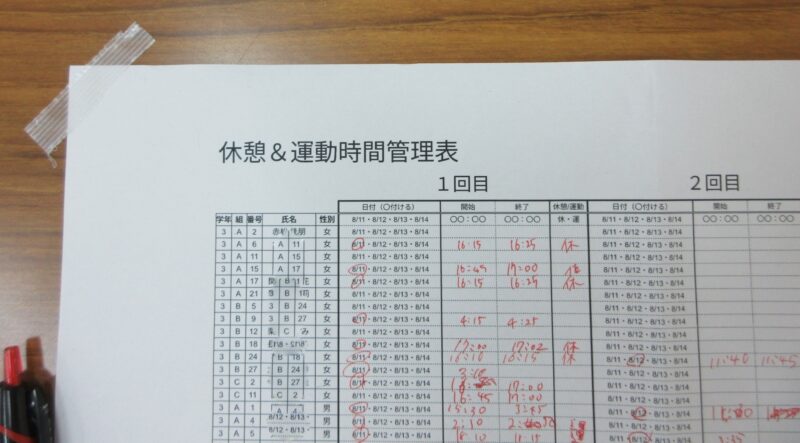 休憩＆運動時間管理表
１回目 ２回目
日付（〇付ける） 開始 終了 休憩/運動 日付（〇付ける） 開始 終了
学年 組 番号 氏名 性別 8/11・8/12・8/13・8/14 〇〇：〇〇 〇〇：〇〇 休・運 8/11・8/12・8/13・8/14 〇〇：〇〇 〇〇：〇〇
3 A 2 女 8/11・8/12・8/13・8/14 8/11・8/12・8/13・8/14
3 A 6 A 11 女 8/11・8/12・8/13・8/14 16:15 16:25 休 8/11・8/12・8/13・8/14
3 A 11 A 15 女 8/11・8/12・8/13・8/14 8/11・8/12・8/13・8/14
3 A 15 A 17 女 8/11・8/12・8/13・8/14 16:45 17:00 休 8/11・8/12・8/13・8/14
3 A 17 女 8/11・8/12・8/13・8/14 16:15 16:25 休 8/11・8/12・8/13・8/14
3 A 21 女 8/11・8/12・8/13・8/14 8/11・8/12・8/13・8/14
3 B 5 3 B 24 女 8/11・8/12・8/13・8/14 8/11・8/12・8/13・8/14
3 B 9 3 B 27 女 8/11・8/12・8/13・8/14 4:15 4:25 8/11・8/12・8/13・8/14
3 B 12 女 8/11・8/12・8/13・8/14 8/11・8/12・8/13・8/14
3 B 18 女 8/11・8/12・8/13・8/14 17:00 17:02 休 8/11・8/12・8/13・8/14
3 B 24 B 18 女 8/11・8/12・8/13・8/14 10:10 10:15 休 8/11・8/12・8/13・8/14 11:40 11:45
3 B 27 B 女 8/11・8/12・8/13・8/14 8/11・8/12・8/13・8/14
3 C 2 B 27 女 8/11・8/12・8/13・8/14 17:00 8/11・8/12・8/13・8/14
3 C 11 C 2 女 8/11・8/12・8/13・8/14 16:45 17:00 8/11・8/12・8/13・8/14
3 A 1 男 8/11・8/12・8/13・8/14 15:30 8/11・8/12・8/13・8/14
3 A 4 8/12・8/13・ 男 8/11・8/12・8/13・8/14 2:10 8/11・8/12・8/13・8/14
3 A 5 8/12・8/13・ 男 8/11・8/12・8/13・8/14 18:10 18:15 8/11・8/12・8/13・8/14